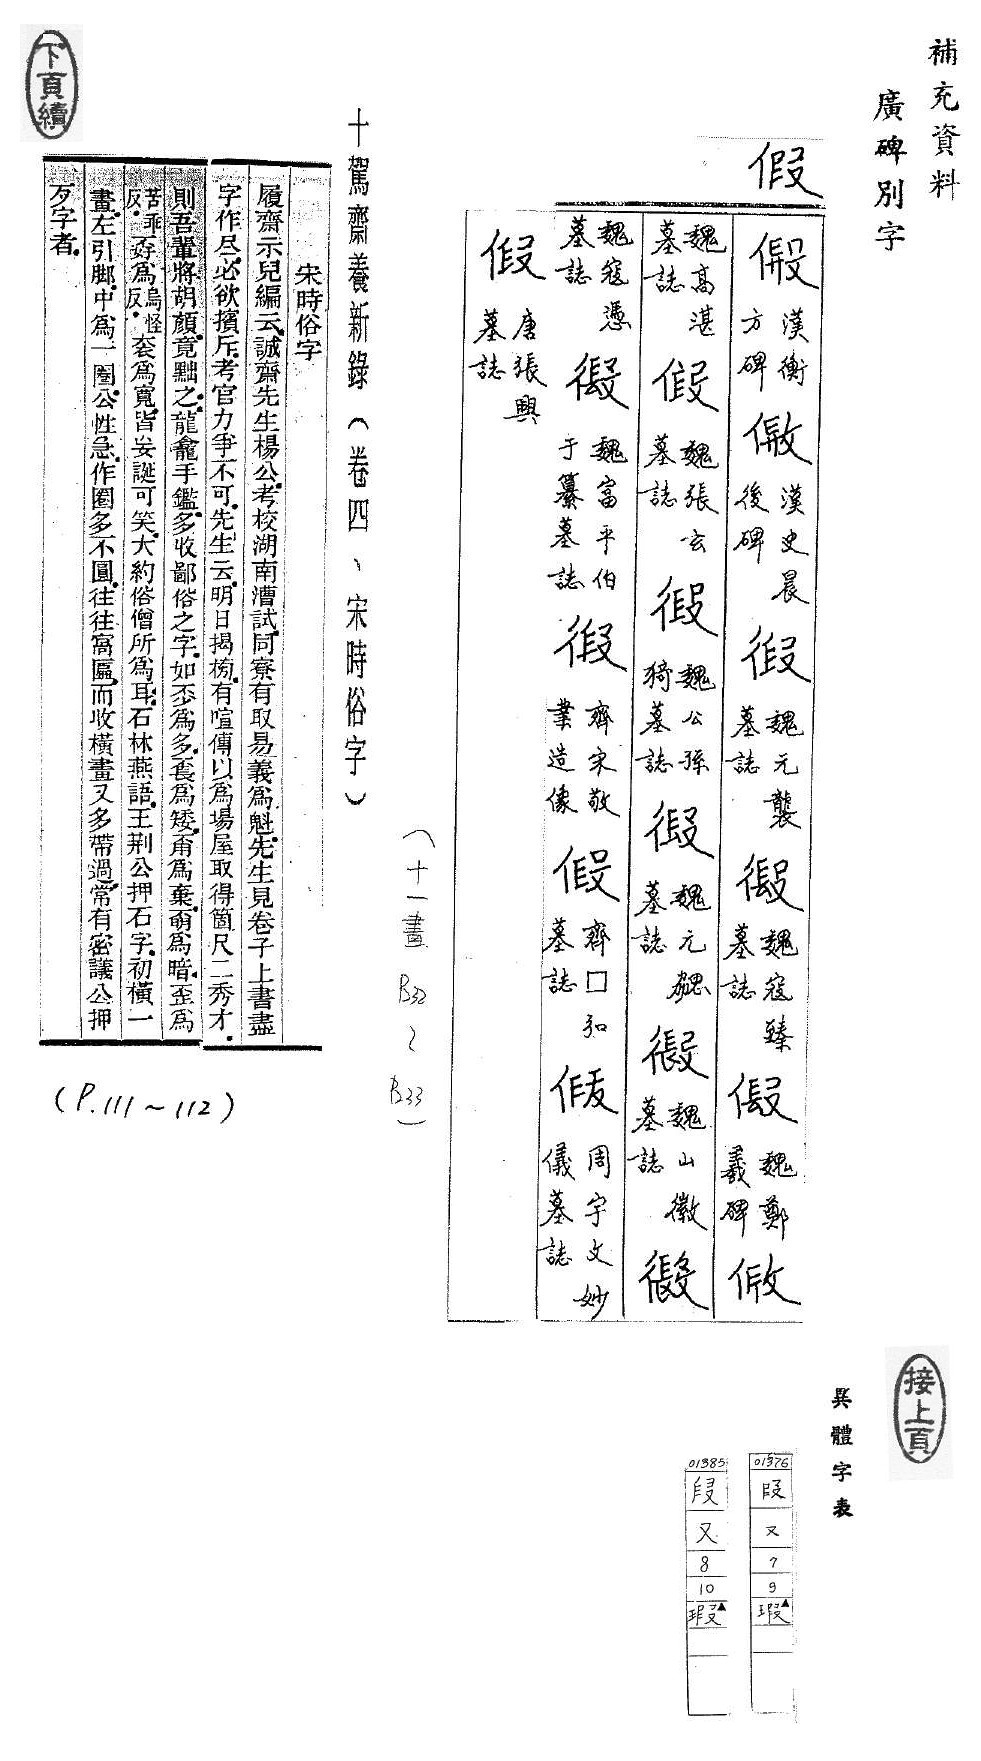 補充資料
廣碑別字
假
漢衡方碑
漢史晨後碑
魏元襲墓誌
魏寇臻墓誌
魏鄭羲碑
魏高湛墓誌
魏張玄墓誌
魏公孫猗墓誌
魏元勰墓誌
魏山徽墓誌
魏寇憑墓誌
魏富平伯于纂墓誌
齊宋敬業造像
齊□弘墓誌
周宇文妙儀墓誌
唐張興墓誌
(十一畫 B32~B33)
十駕齋養新錄(卷四、宋時俗字)
宋時俗字
履齋示兒編云誠齋先生楊公考校湖南漕試同寮有取易義爲魁先生見卷子上書盡
字作尽必欲擯斥考官力爭不可先生云明日揭榜有喧傳以爲場屋取得箇尺二秀才
則吾輩將胡顏竟黜之龍龕手鑑多收鄙俗之字如歪爲
苦乖反 爲烏怪反 爲寬皆妄誕可笑大約俗僧所爲耳石林燕語王荆公押石字初橫一
畫左引脚中爲一圈公性急作圈多不圓往往窩匾而收橫畫又多帶過常有密議公押
歹字者
(P.111~112)
下頁續
接上頁
異體字表
01376
叚
又
7
9
瑕▲
01385
又
8
10
瑕▲